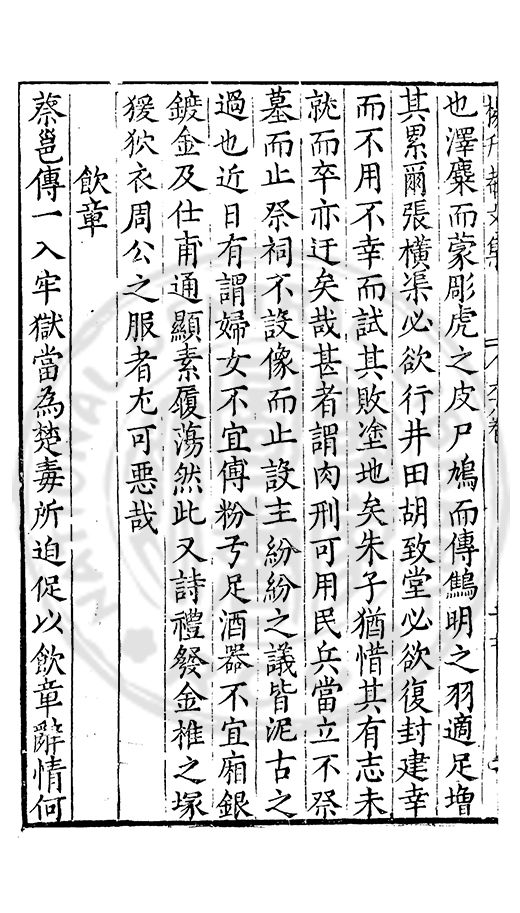 楊升菴文集
也澤麋而蒙彫虎之皮尸鳩而傅鷦明之羽適足増
其累爾張橫渠必欲行井田胡致堂必欲復封建幸
而不用不幸而試其敗塗地矣朱子猶惜其有志未
就而卒亦迂矣哉甚者謂肉刑可用民兵當立不祭
墓而止祭祠不設像而止設主紛紛之議皆泥古之
過也近日有謂婦女不宜傅粉弓足酒器不宜廂銀
鍍金及仕甫通顯素履蕩然此又詩禮發金椎之塚
猨狖衣周公之服者尢可惡哉
飲章
蔡邕傳一入牢獄當為楚毒所迫促以飲章辭情何